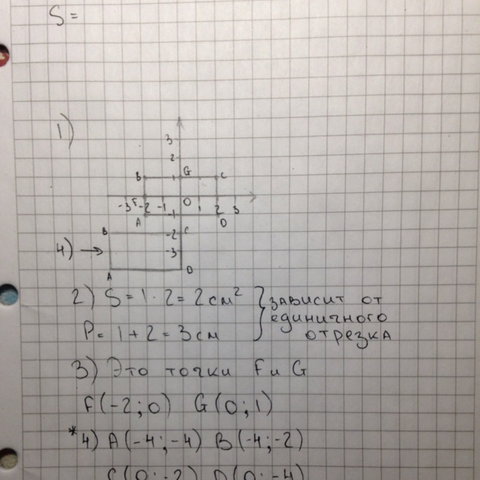 S =
1)
3
2
B 1 G C
-3 F -2 -1 O 1 2 3
A -1 D
B -2 C
4) →
-3
A D
2) S = 1 · 2 = 2 см² } зависит от
единичного
P = 1 + 2 = 3 см отрезка
3) Это точки F и G
F(-2; 0) G(0; 1)
*4) A(-4; -4) B(-4; -2)
C(0; -2) D(0; -4)